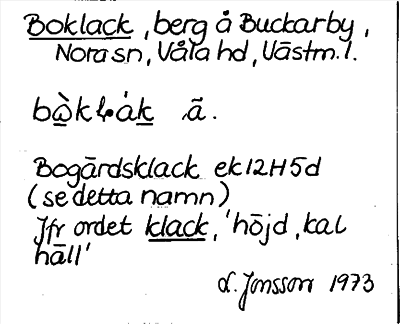 Boklack, berg å Buckarby,
Nora sn, Våla hd, Västm. l.
bò̱kłȧḵ ã.
Bogärdsklack ek 12H5d
(se detta namn)
Jfr ordet klack, 'höjd, kal
häll'
L. Jonsson 1973